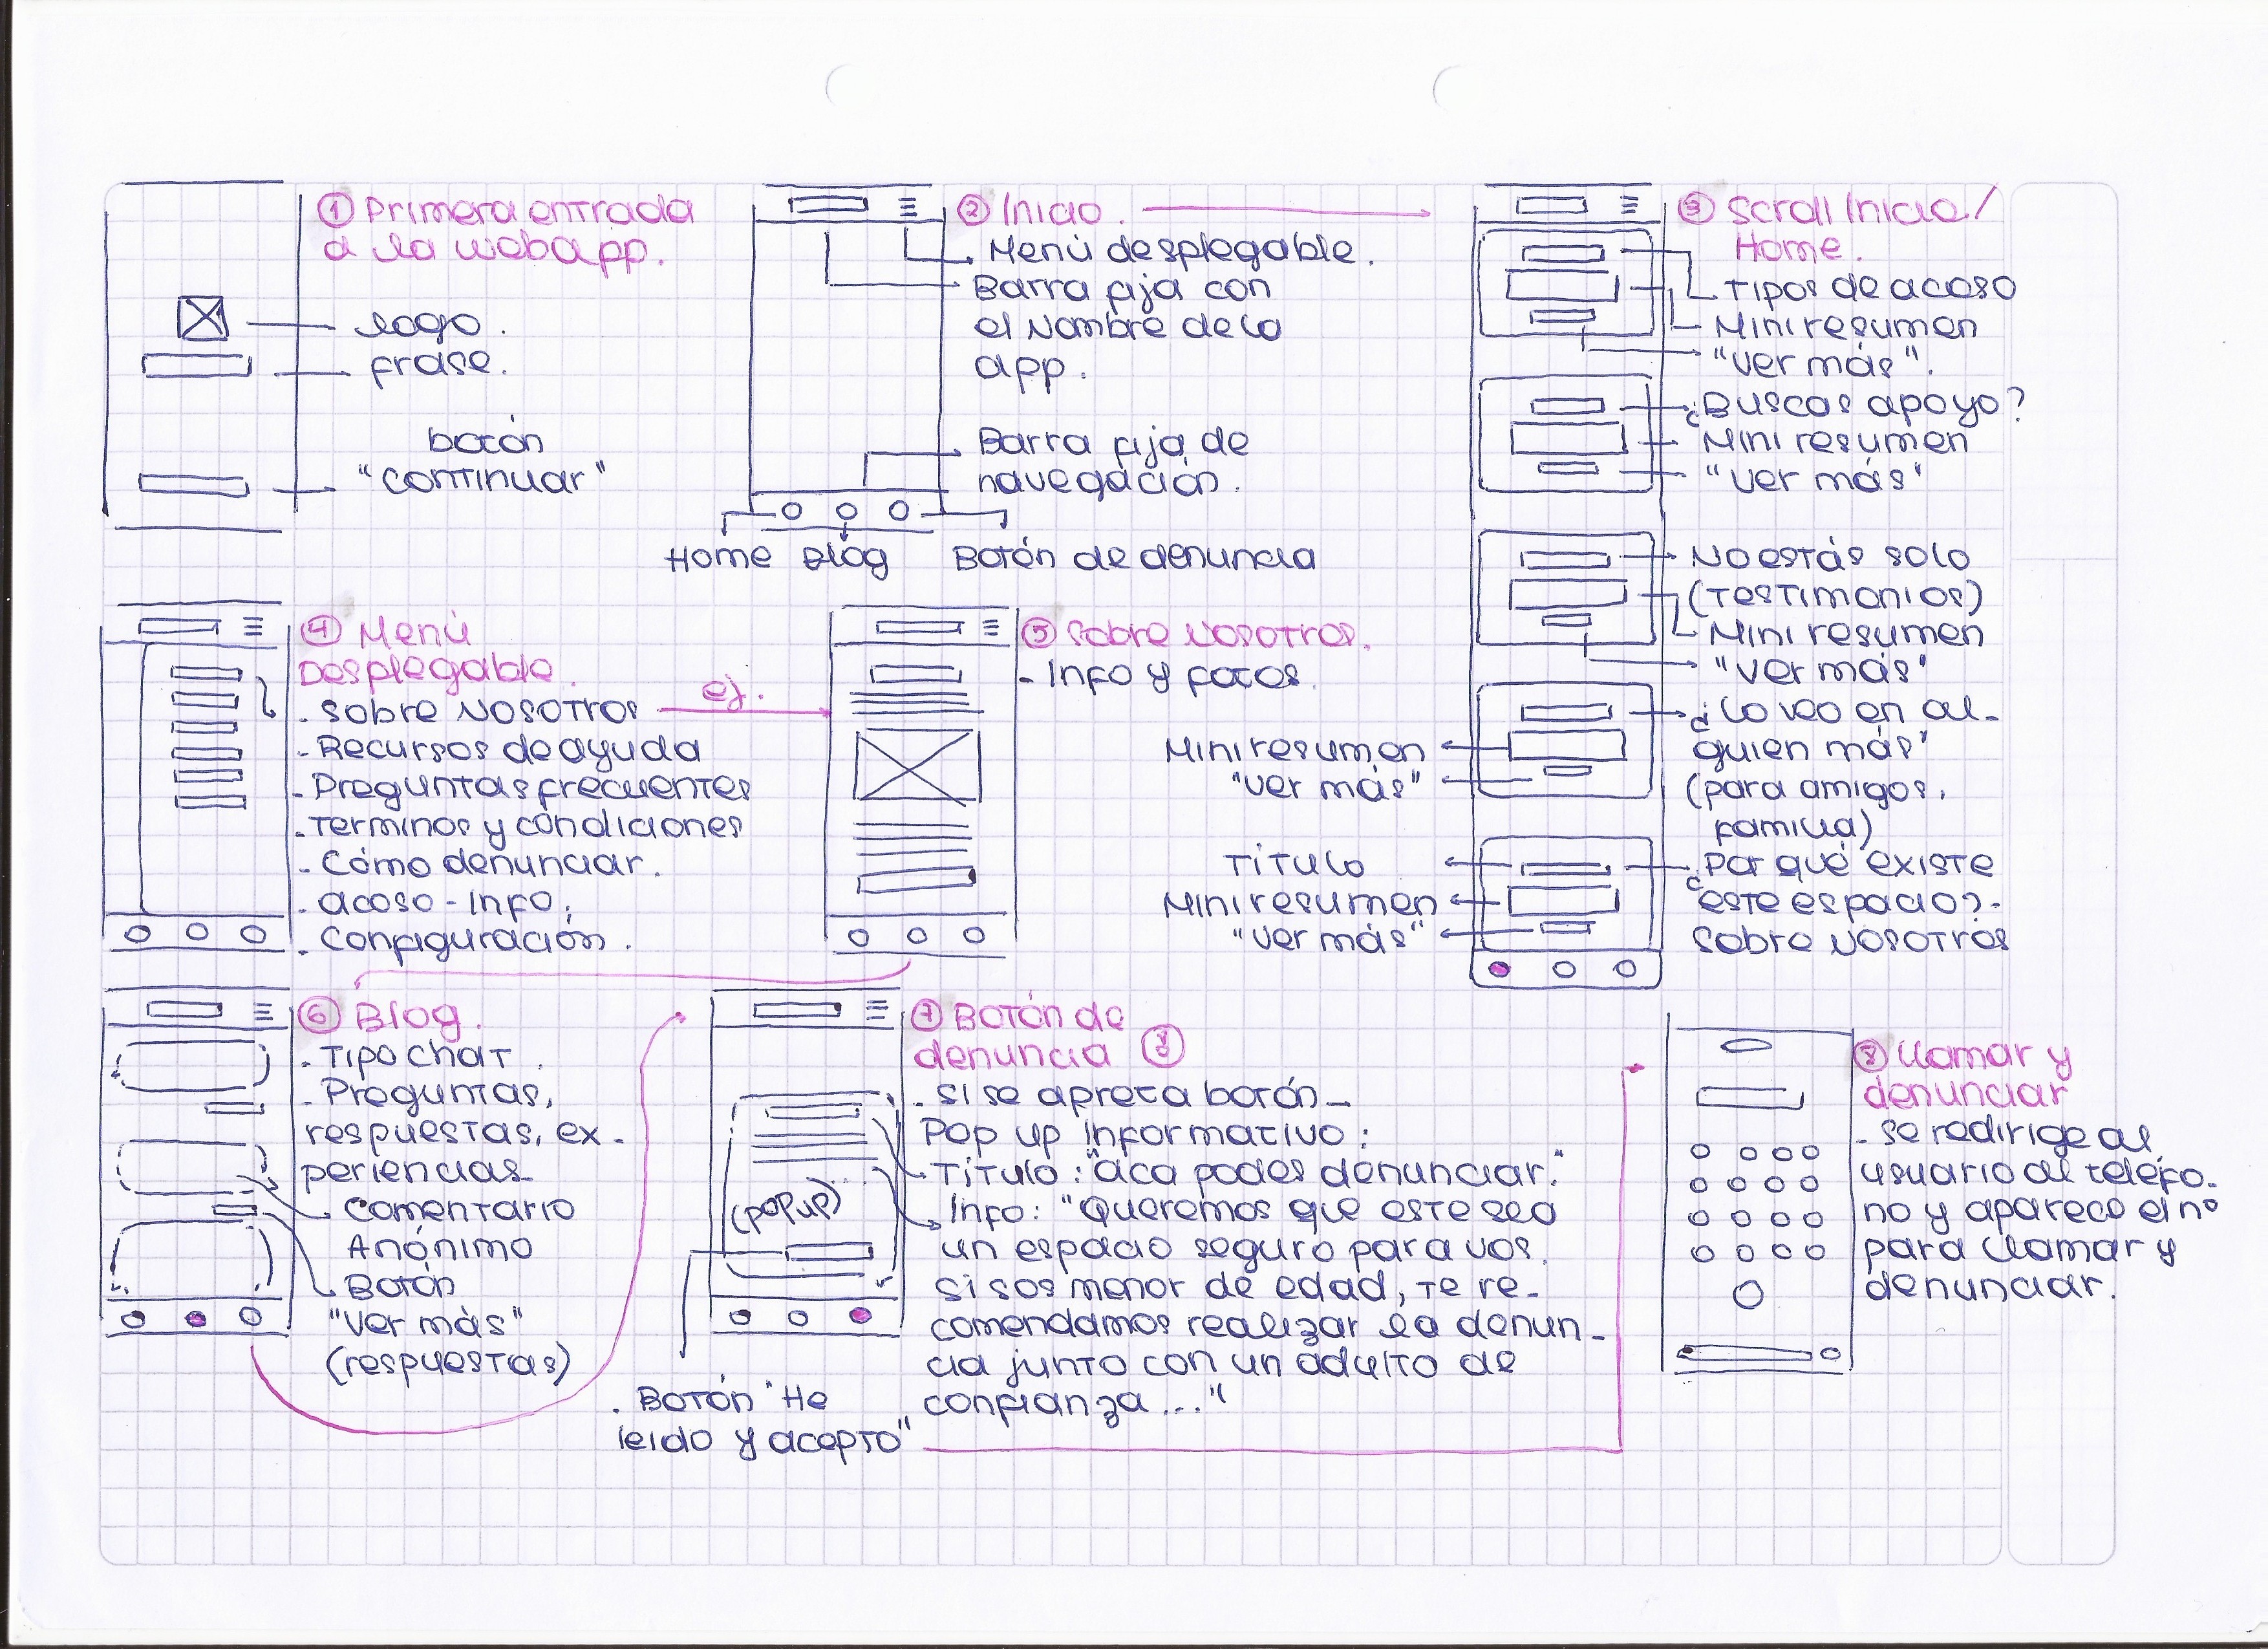 ① Primera entrada
a la webapp.
logo.
frase.
botón
"continuar"
② Inicio.
Menú desplegable.
Barra fija con
el Nombre de la
app.
Barra fija de
navegación.
Home Blog Botón de denuncia
③ Scroll Inicio/
Home.
Tipos de acoso
Mini resumen
"ver más".
¿Buscas apoyo?
Mini resumen
"ver más"
No estás solo
(testimonios)
Mini resumen
"ver más"
¿Lo veo en al-
guien más"
(para amigos,
familia)
Mini resumen
"ver más"
¿Por qué existe
este espacio?-
Sobre Nosotros
Título
Mini resumen
"ver más"
④ Menú
Desplegable.
. Sobre Nosotros
ej.
- Recursos de ayuda
- Preguntas frecuentes
. Terminos y condiciones
- Cómo denunciar.
- acoso - Info.
. Configuración.
⑤ Sobre Nosotros.
- Info y fotos.
⑥ Blog.
- Tipo chat.
- Preguntas,
respuestas, ex-
periencias
Comentario
Anónimo
Botón
"ver más"
(respuestas)
⑦ Botón de
denuncia
- Si se apreta botón-
Pop up informativo:
Título: "aca podes denunciar."
Info: "Queremos que este sea
un espacio seguro para vos.
Si sos menor de edad, te re-
comendamos realizar la denun-
cia junto con un adulto de
confianza..."
(popup)
. Botón "He
leido y acepto"
⑧ Llamar y
denunciar
- se redirige al
usuario al teléfo-
no y aparece el nº
para llamar y
denunciar.